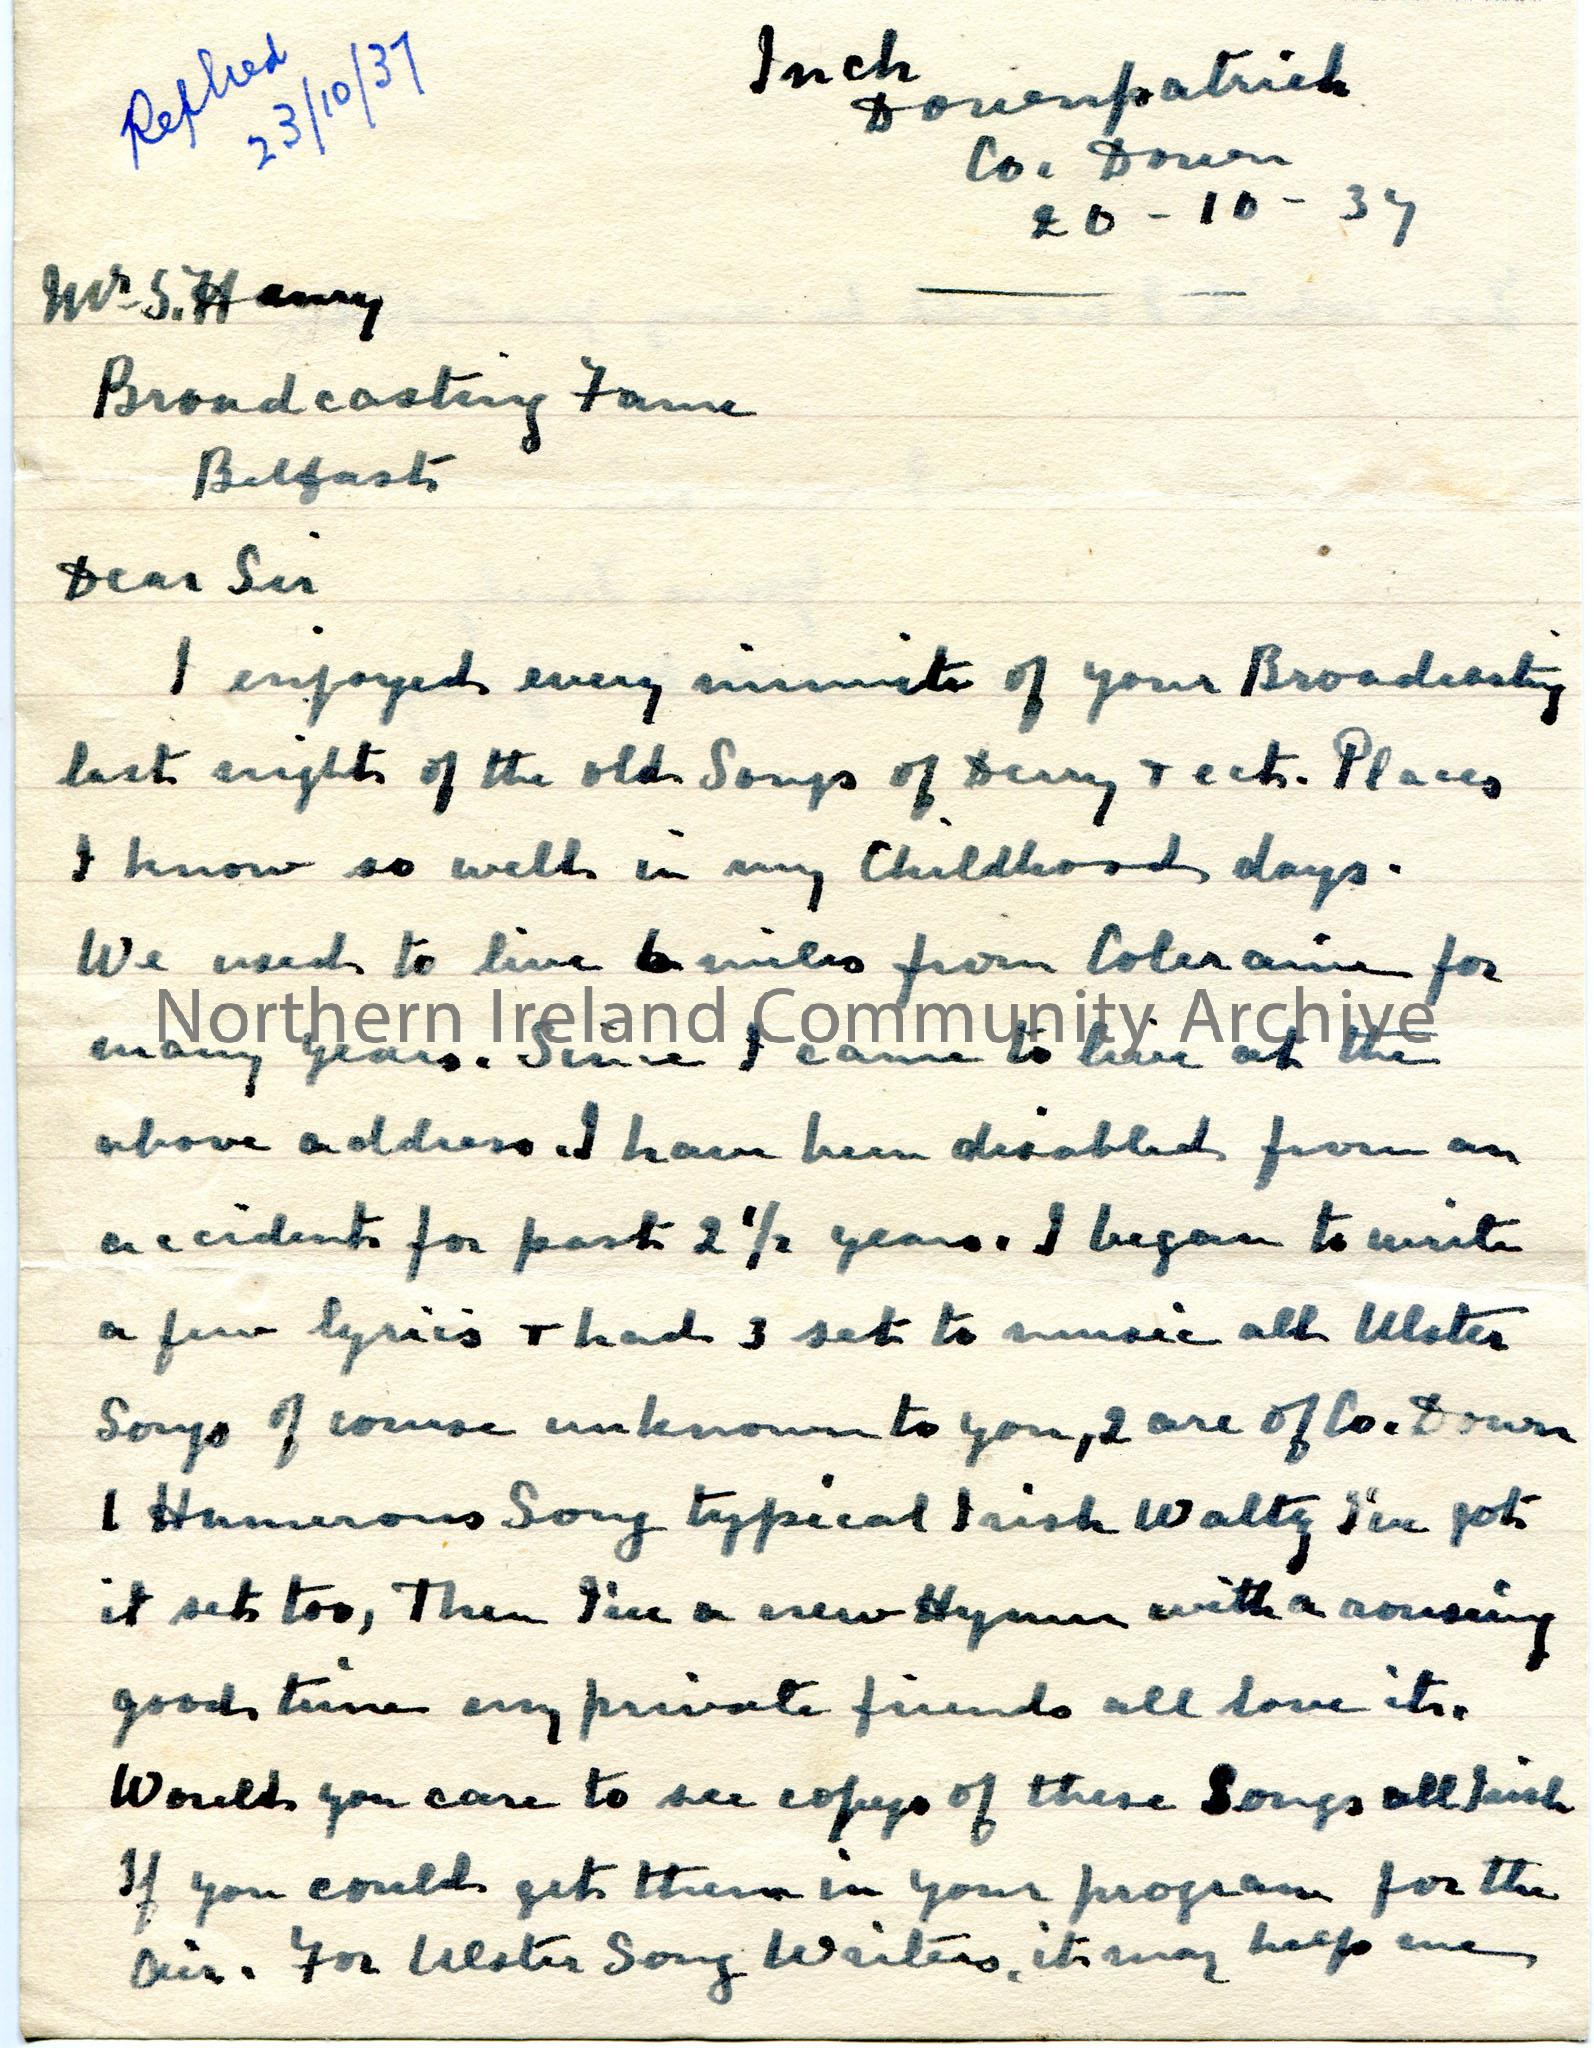 Replied
23/10/37
Inch
Downpatrick
Co. Down
20-10-37
Mr S. Henry
Broadcasting Fame
Belfast
Dear Sir
I enjoyed every minute of your Broadcasting
last night of the old Songs of Derry & ect. Places
I know so well in my Childhood days.
We used to live 6 miles from Coleraine for
Northern Ireland Community Archive
many years. Since I came to live at the
above address. I have been disabled from an
accident for past 2 1/2 years. I began to write
a few lyrics & had 3 set to music all Ulster
Songs of course unknown to you, 2 are of Co. Down
1 Humerous Song typical Irish Waltz I've got
it set too, Then I've a new Hymn with a rousing
good tune my private friends all love it.
Would you care to see copys of these Songs all Irish
If you could get them in your program for the
Air. For Ulster Song Writers, it may help me